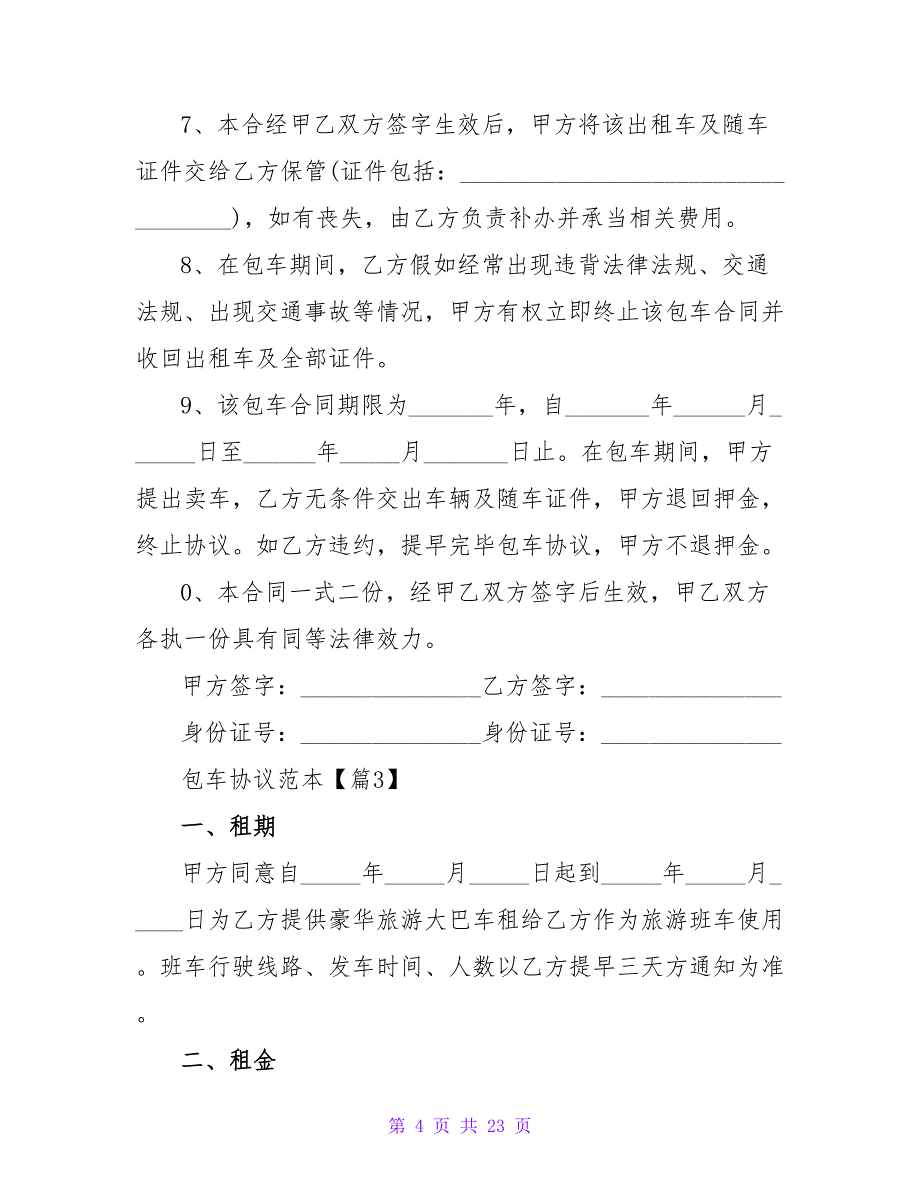 7、本合经甲乙双方签字生效后，甲方将该出租车及随车
证件交给乙方保管(证件包括：___________________________
________)，如有丧失，由乙方负责补办并承当相关费用。
8、在包车期间，乙方假如经常出现违背法律法规、交通
法规、出现交通事故等情况，甲方有权立即终止该包车合同并
收回出租车及全部证件。
9、该包车合同期限为_______年，自_______年______月_
_____日至______年_____月_______日止。在包车期间，甲方
提出卖车，乙方无条件交出车辆及随车证件，甲方退回押金，
终止协议。如乙方违约，提早完毕包车协议，甲方不退押金。
0、本合同一式二份，经甲乙双方签字后生效，甲乙双方
各执一份具有同等法律效力。
甲方签字：_______________乙方签字：_______________
身份证号：_______________身份证号：_______________
包车协议范本【篇3】
一、租期
甲方同意自_____年_____月_____日起到_____年_____月_
____日为乙方提供豪华旅游大巴车租给乙方作为旅游班车使用
。班车行驶线路、发车时间、人数以乙方提早三天方通知为准
。
二、租金
第 4 页 共 23 页